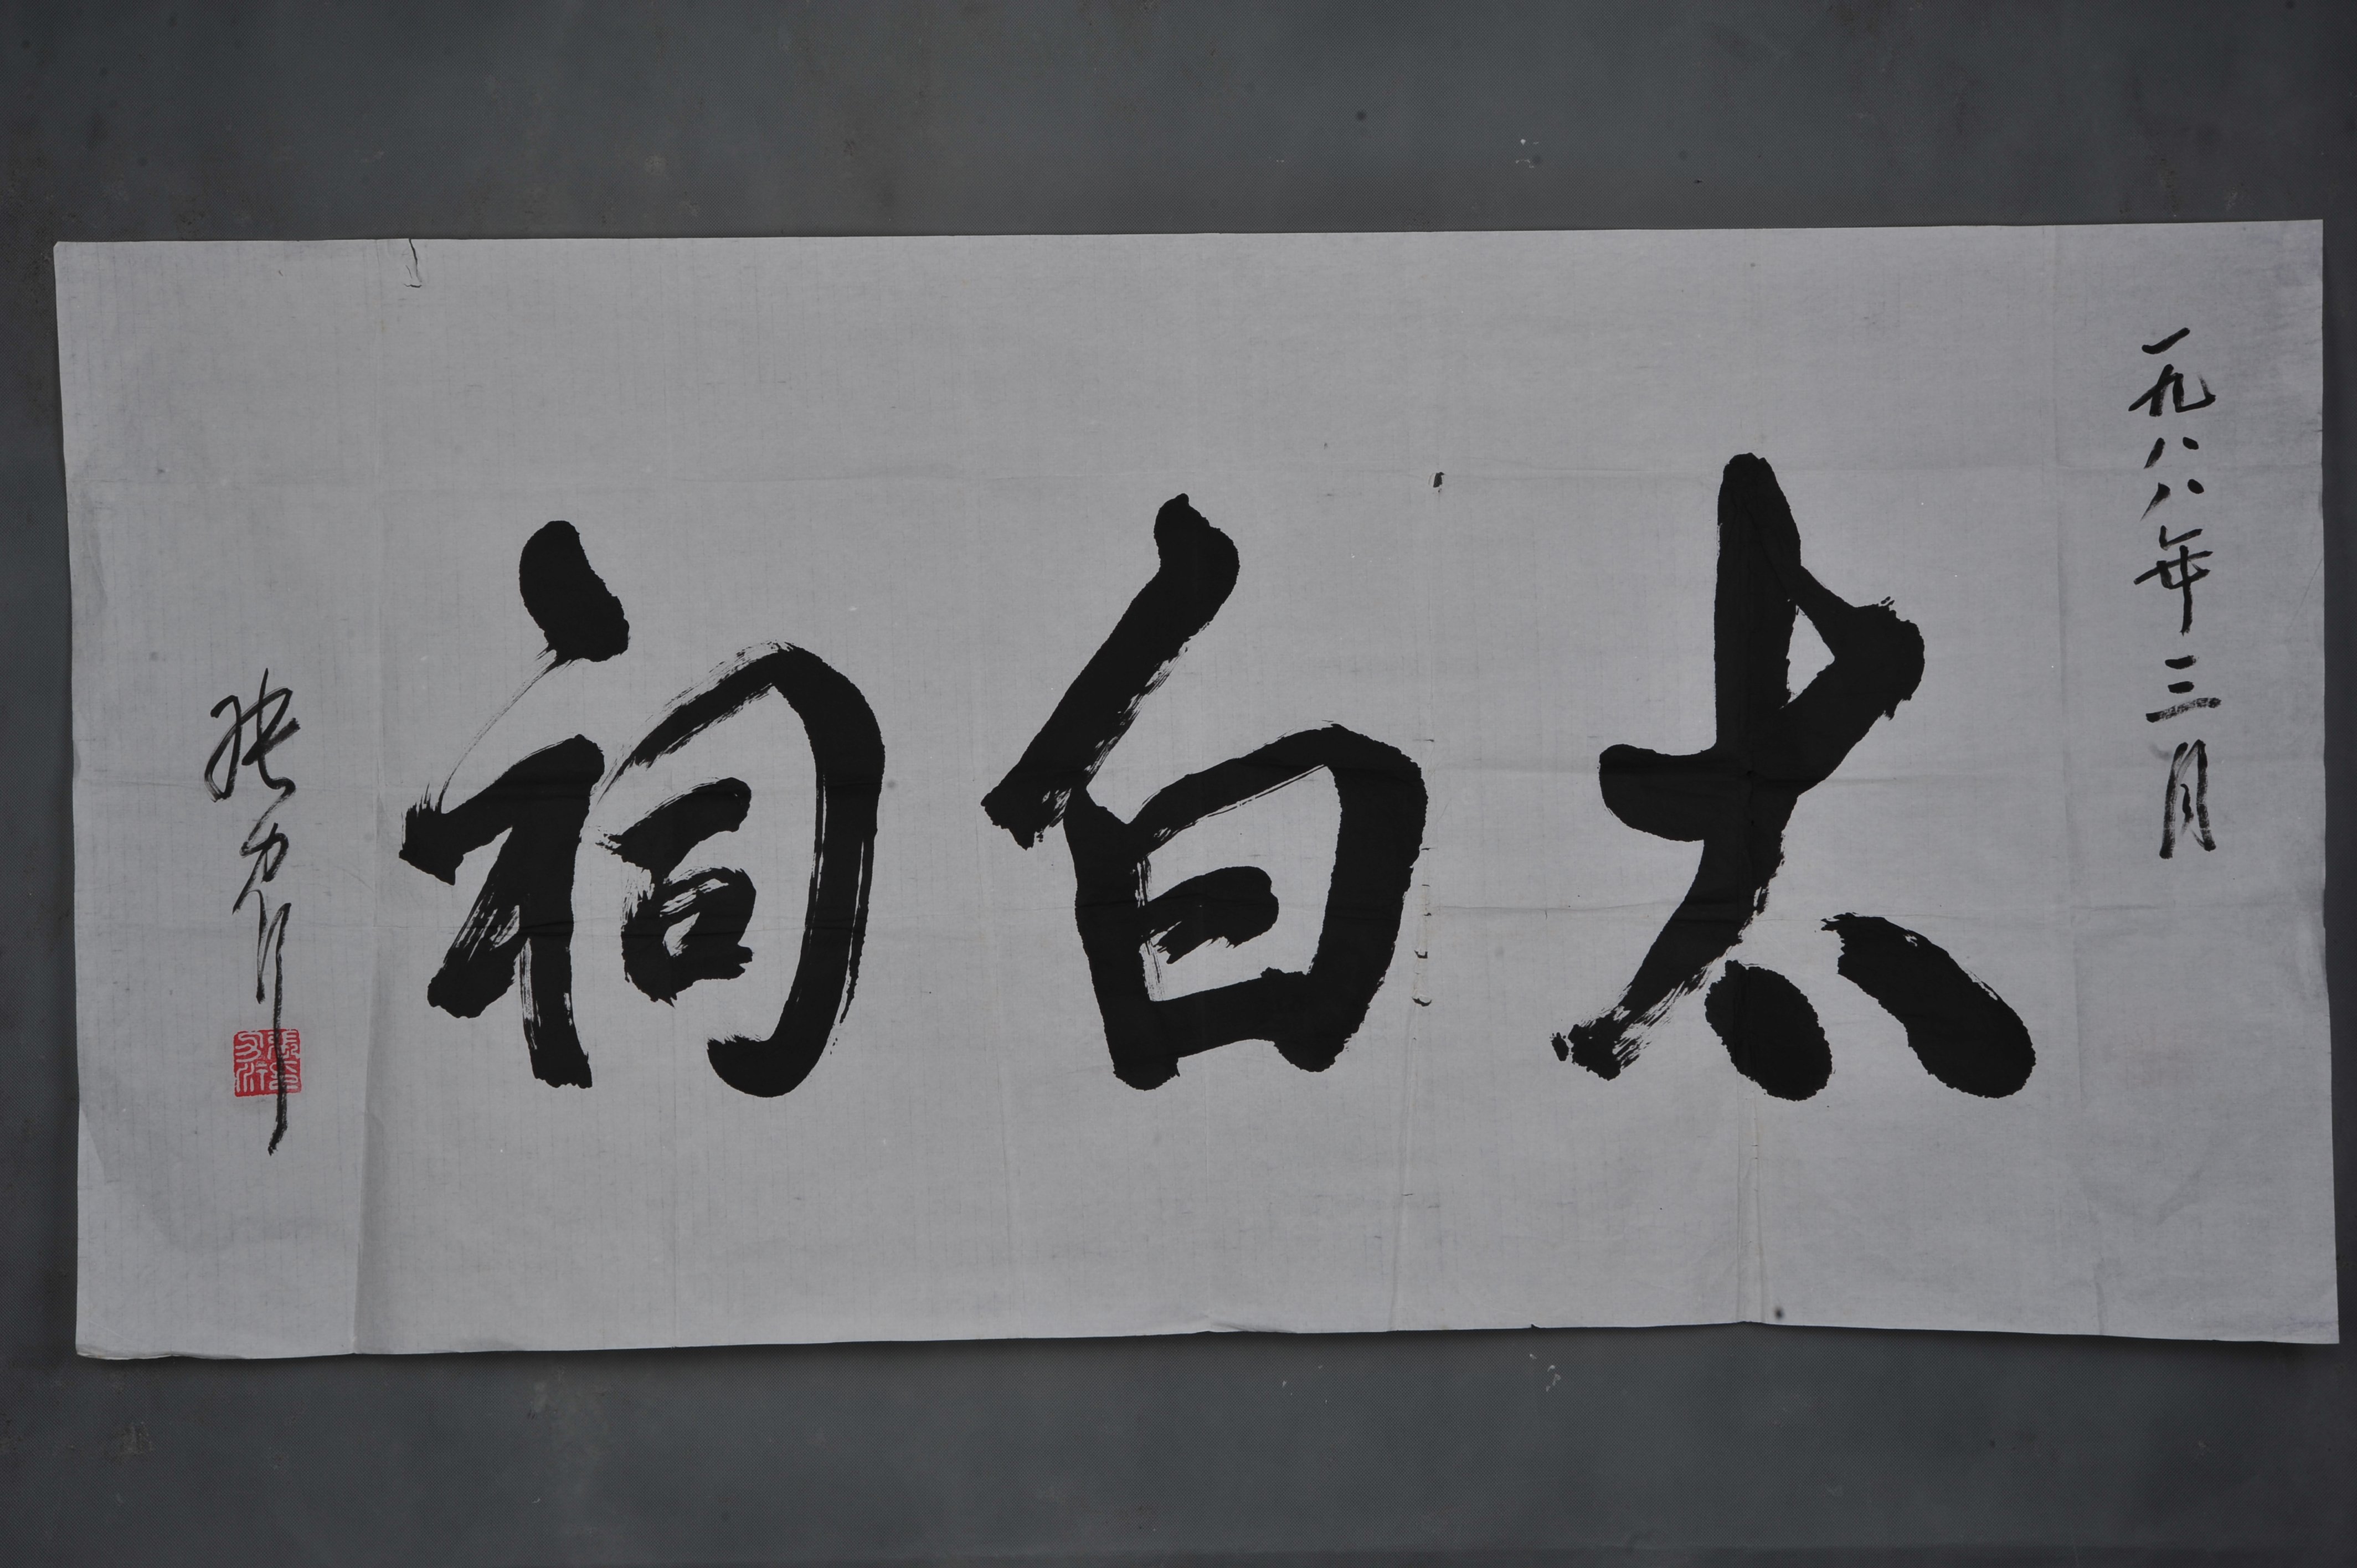 一九八八年三月
太白祠
张力行